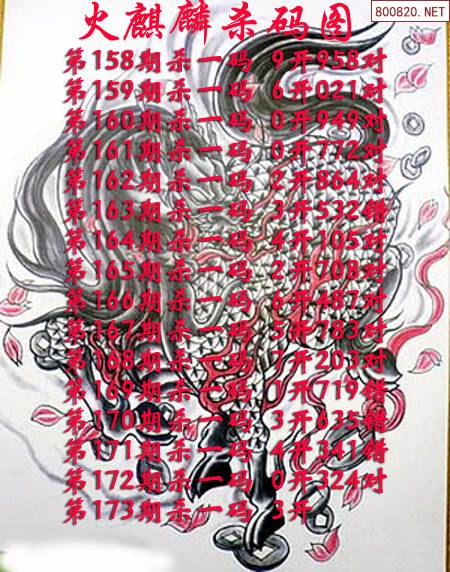 800820.NET
火麒麟杀码图
第158期杀一码 9开958对
第159期杀一码 6开021对
第160期杀一码 0开949对
第161期杀一码 0开772对
第162期杀一码 2开864对
第163期杀一码 3开532错
第164期杀一码 4开105对
第165期杀一码 2开708对
第166期杀一码 6开487对
第167期杀一码 5开783对
第168期杀一码 7开203对
第169期杀一码 1开719错
第170期杀一码 3开635错
第171期杀一码 4开341错
第172期杀一码 0开324对
第173期杀一码 3开